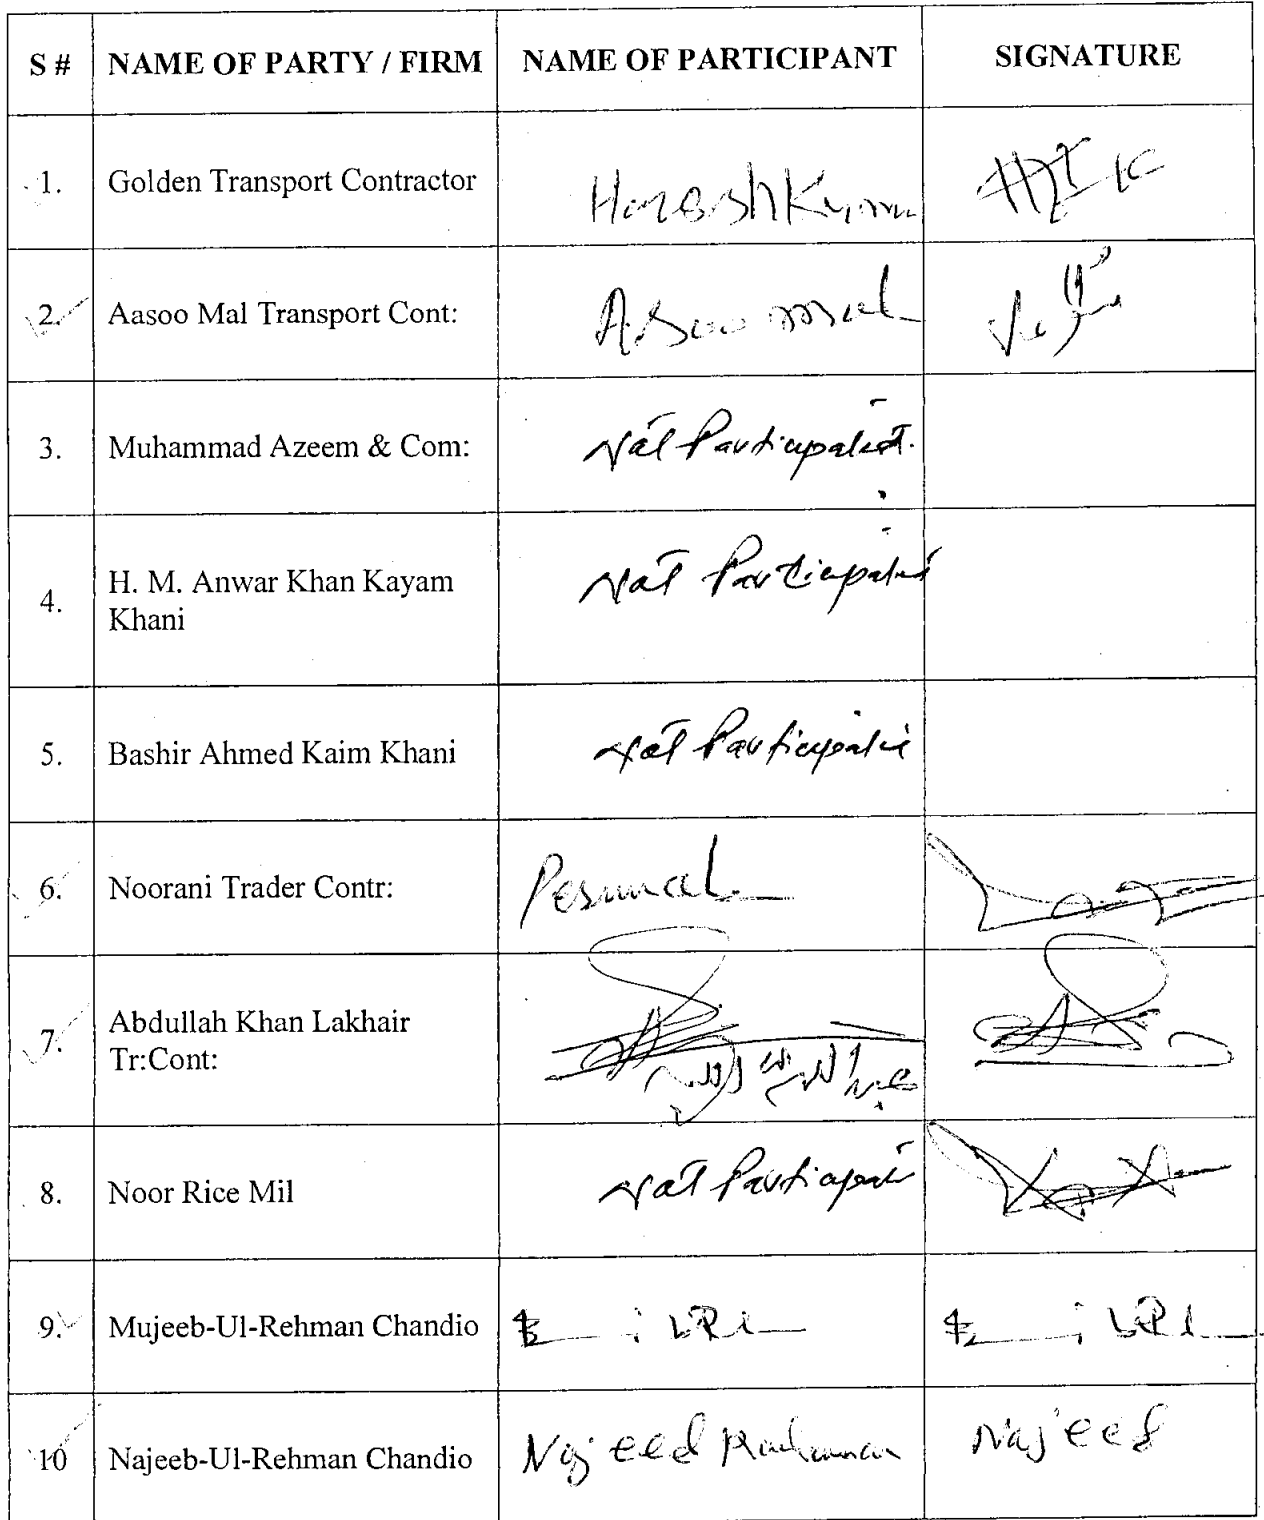 S # NAME OF PARTY / FIRM NAME OF PARTICIPANT SIGNATURE
1. Golden Transport Contractor
2. Aasoo Mal Transport Cont: Asoo mal
3. Muhammad Azeem & Com: Not Participated.
4. H. M. Anwar Khan Kayam Not Participated
Khani
5. Bashir Ahmed Kaim Khani Not Participate
6. Noorani Trader Contr: Pesumal
7. Abdullah Khan Lakhair
Tr:Cont:
8. Noor Rice Mil Not
9. Mujeeb-Ul-Rehman Chandio
10 Najeeb-Ul-Rehman Chandio